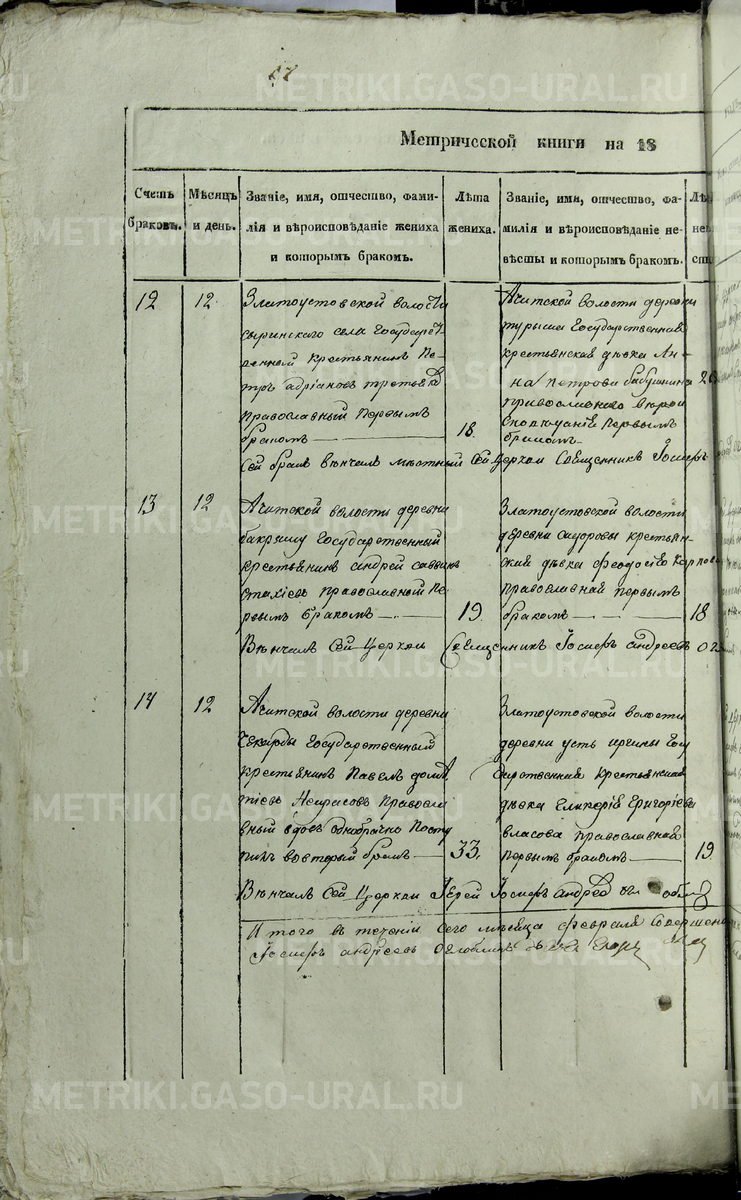 Метрической книги на 18
Счетъ браковъ.
Мѣсяцъ и день.
Званіе, имя, отчество, фами-
лія и вѣроисповѣданіе жениха
и которымъ бракомъ.
Лѣта жениха.
Званіе, имя, отчество, фа-
милія и вѣроисповѣданіе не-
вѣсты и которымъ бракомъ.
12
12
Златоустовской волости
сыринскаго села Государст-
венный крестьянинъ Пе-
тръ адріановъ третьяковъ
Православный Первымъ
бракомъ
18.
Ачитской волости деревни
турыша Государственная
крестьянская дѣвка Ан-
на петрова бабушкина
православнаго
Первымъ
бракомъ
Сей бракъ вѣнчалъ мѣстный сей церкви Священникъ Іосифъ
13
12
Ачитской волости деревни
бакряшу Государственный
крестьянинъ андрей саввинъ
Православной Пе-
рвымъ бракомъ
19.
Златоустовской волости
деревни сидоровы крестьян-
ская дѣвка феодосія Карпова
Православная первымъ
бракомъ
18
Вѣнчалъ Сей Церкви Священникъ Іосифъ андреевъ
14
12
Ачитской волости деревни
Чекарды Государственный
крестьянинъ Павелъ
Некрасовъ Правосла
вный вдовъ однобрачно Посту
пилъ во вторый бракъ
33.
Златоустовской волости
деревни усть иргины Госу
дарственная Крестьянская
дѣвка Гликерія Григоріева
власова православная
Первымъ бракомъ
19.
Вѣнчалъ Сей Церкви Іерей Іосифъ Андреевъ
Итого въ теченіи сего мѣсяца февраля Совершено
Іосифъ андреевъ
METRIKI.GASO-URAL.RU